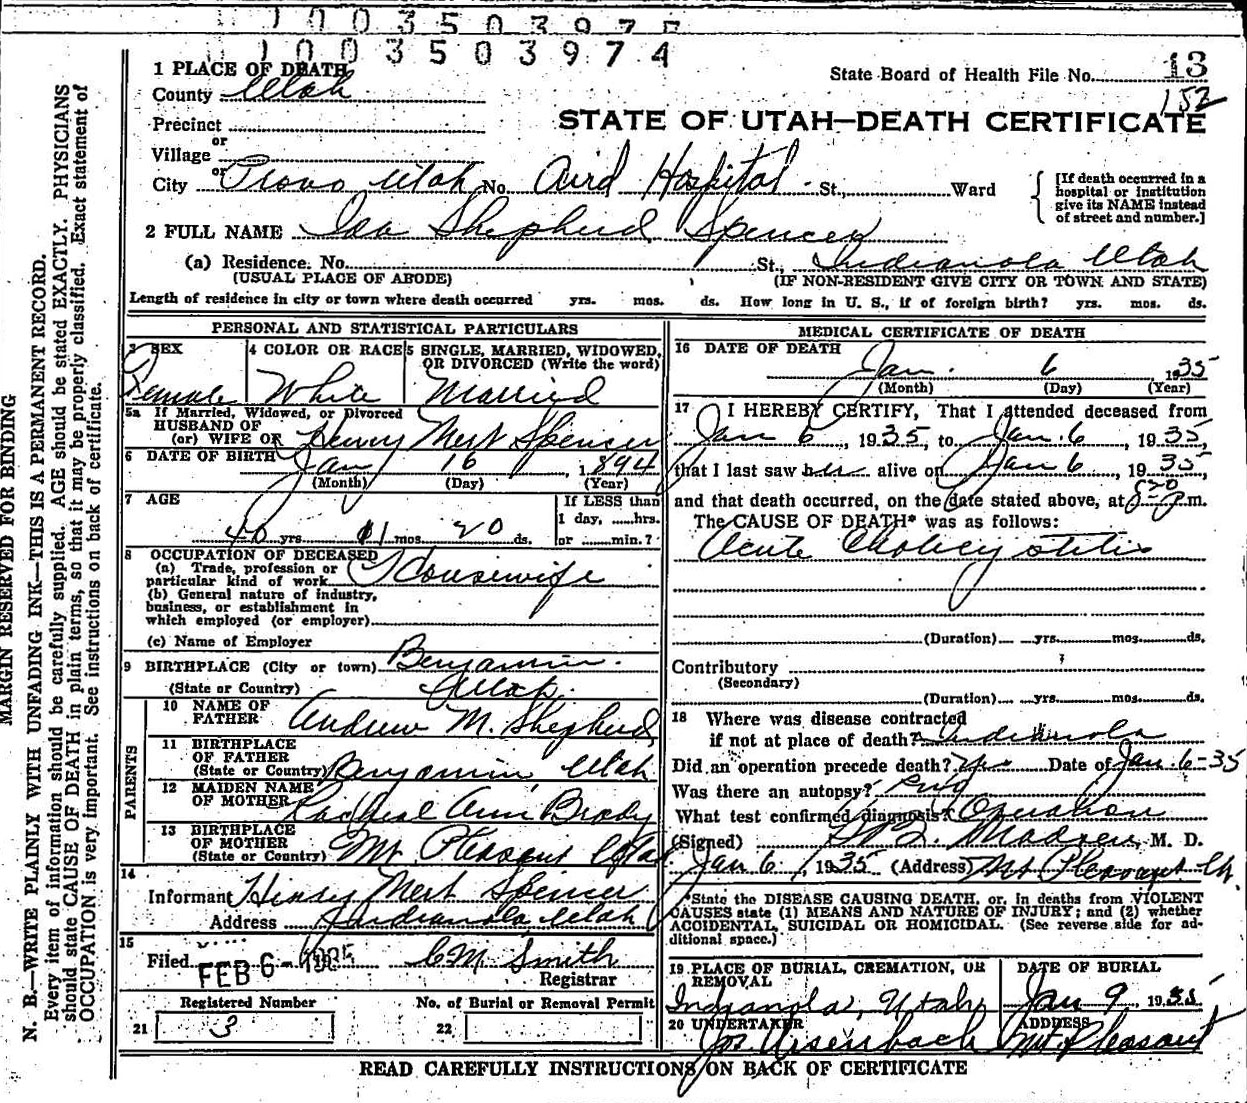 1003503975
1003503974
1 PLACE OF DEATH
State Board of Health File No. 13
County Utah
152
STATE OF UTAH—DEATH CERTIFICATE
Precinct
or
Village
or
City Provo Utah No. Aird Hospital St., Ward
[If death occurred in a hospital or institution give its NAME instead of street and number.]
2 FULL NAME Ida Shepherd Spencer
(a) Residence. No. St., Indianola Utah
(USUAL PLACE OF ABODE) (IF NON-RESIDENT GIVE CITY OR TOWN AND STATE)
Length of residence in city or town where death occurred yrs. mos. ds. How long in U. S., if of foreign birth? yrs. mos. ds.
PERSONAL AND STATISTICAL PARTICULARS
3 SEX
Female
4 COLOR OR RACE
White
5 SINGLE, MARRIED, WIDOWED, OR DIVORCED (Write the word)
Married
5a If Married, Widowed, or Divorced
HUSBAND OF
(or) WIFE OF Henry Mert Spencer
6 DATE OF BIRTH Jan 16, 1894
(Month) (Day) (Year)
7 AGE
40 yrs 11 mos. 20 ds.
If LESS than
1 day, ......hrs.
or ......min.?
8 OCCUPATION OF DECEASED
(a) Trade, profession or
particular kind of work Housewife
(b) General nature of industry,
business, or establishment in
which employed (or employer)
(c) Name of Employer
9 BIRTHPLACE (City or town) Benjamin.
(State or Country) Utah.
PARENTS
10 NAME OF
FATHER Andrew M. Shepherd
11 BIRTHPLACE
OF FATHER
(State or Country) Benjamin Utah
12 MAIDEN NAME
OF MOTHER Racheal Ann Brady
13 BIRTHPLACE
OF MOTHER
(State or Country) Mt Pleasant Utah
14
Informant Henry Mert Spencer
Address Indianola, Utah
15
Filed FEB 6-1935 C M Smith
Registrar
Registered Number No. of Burial or Removal Permit
21 3 22
MEDICAL CERTIFICATE OF DEATH
16 DATE OF DEATH
Jan. 6 1935
(Month) (Day) (Year)
17 I HEREBY CERTIFY, That I attended deceased from
Jan 6, 1935, to Jan. 6, 1935,
that I last saw her alive on Jan 6, 1935
and that death occurred, on the date stated above, at p.m.
The CAUSE OF DEATH* was as follows:
Acute Cholecystitis
(Duration) yrs. mos. ds.
Contributory
(Secondary)
(Duration) yrs. mos. ds.
18 Where was disease contracted
if not at place of death? Indianola
Did an operation precede death? yes Date of Jan. 6-35
Was there an autopsy?
What test confirmed diagnosis? Operation
(Signed) Madsen, M. D.
Jan 6, 1935 (Address) Mt Pleasant Ut.
*State the DISEASE CAUSING DEATH, or, in deaths from VIOLENT
CAUSES state (1) MEANS AND NATURE OF INJURY; and (2) whether
ACCIDENTAL, SUICIDAL OR HOMICIDAL. (See reverse side for ad-
ditional space.)
19 PLACE OF BURIAL, CREMATION, OR REMOVAL
Indianola, Utah
DATE OF BURIAL
Jan 9, 1935
20 UNDERTAKER
Jos Aisenbach
ADDRESS
Mt Pleasant
READ CAREFULLY INSTRUCTIONS ON BACK OF CERTIFICATE
MARGIN RESERVED FOR BINDING
N. B.—WRITE PLAINLY WITH UNFADING INK—THIS IS A PERMANENT RECORD.
Every item of information should be carefully supplied. AGE should be stated EXACTLY. PHYSICIANS
should state CAUSE OF DEATH in plain terms, so that it may be properly classified. Exact statement of
OCCUPATION is very important. See instructions on back of certificate.